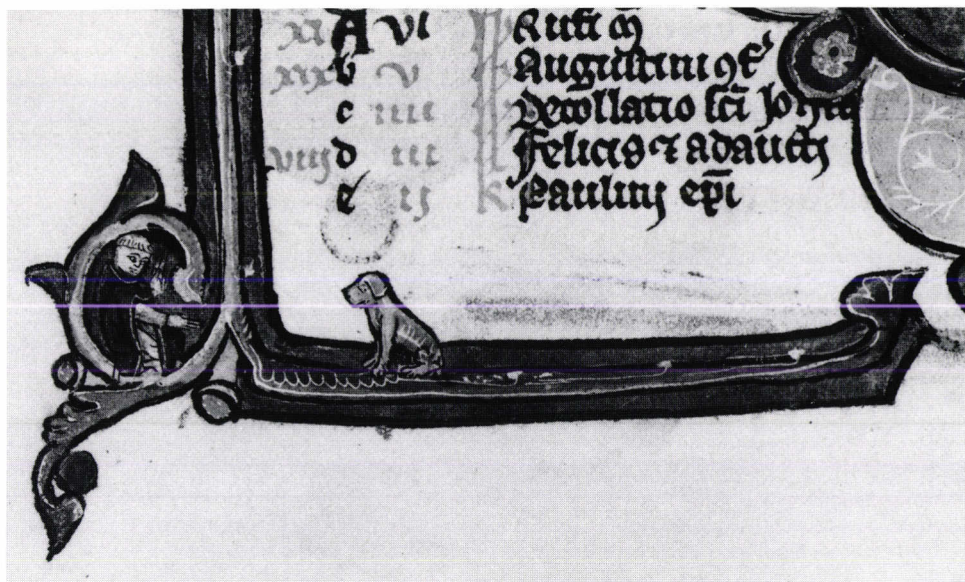 xi A vi k Rufi m
xix b v k Augustini 9f'
c iiii k Decollatio sci Joh
viii d iii k Felicis ⁊ adaucti
e ii k Paulini epi